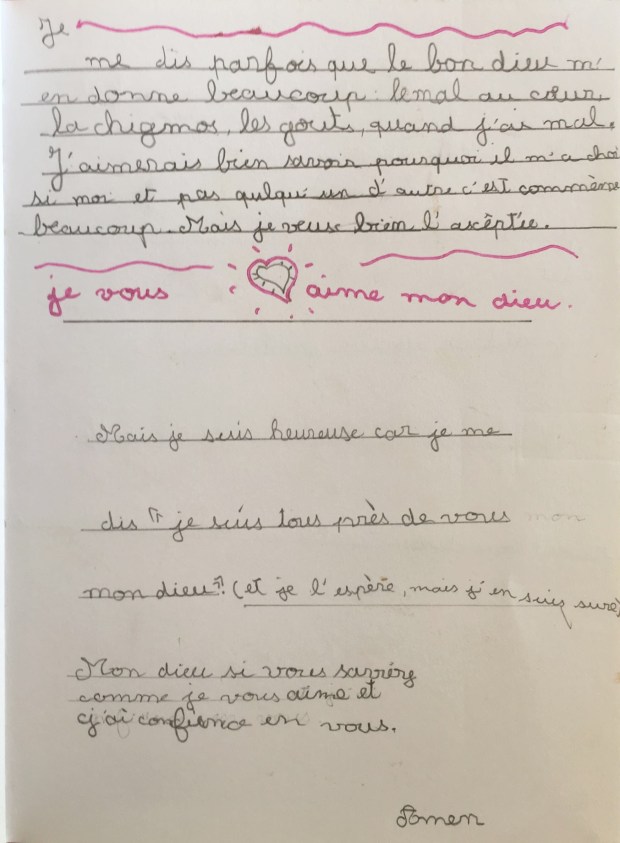 Je
me dis parfois que le bon dieu m'
en donne beaucoup : le mal au cœur,
la chigmos, les goûts, quand j'ai mal.
J'aimerais bien savoir pourquoi il m'a choi
si moi et pas qulqu'un d'autre c'est
beaucoup. Mais je veux bien l'asêptée.
je vous aime mon dieu.
Mais je suis heureuse car je me
dis " je suis tous près de vous mon
mon dieu". (et je l'espère, mais j'en suis sure)
Mon dieu si vous
comme je vous aime et
j'ai confience en vous.
Amen